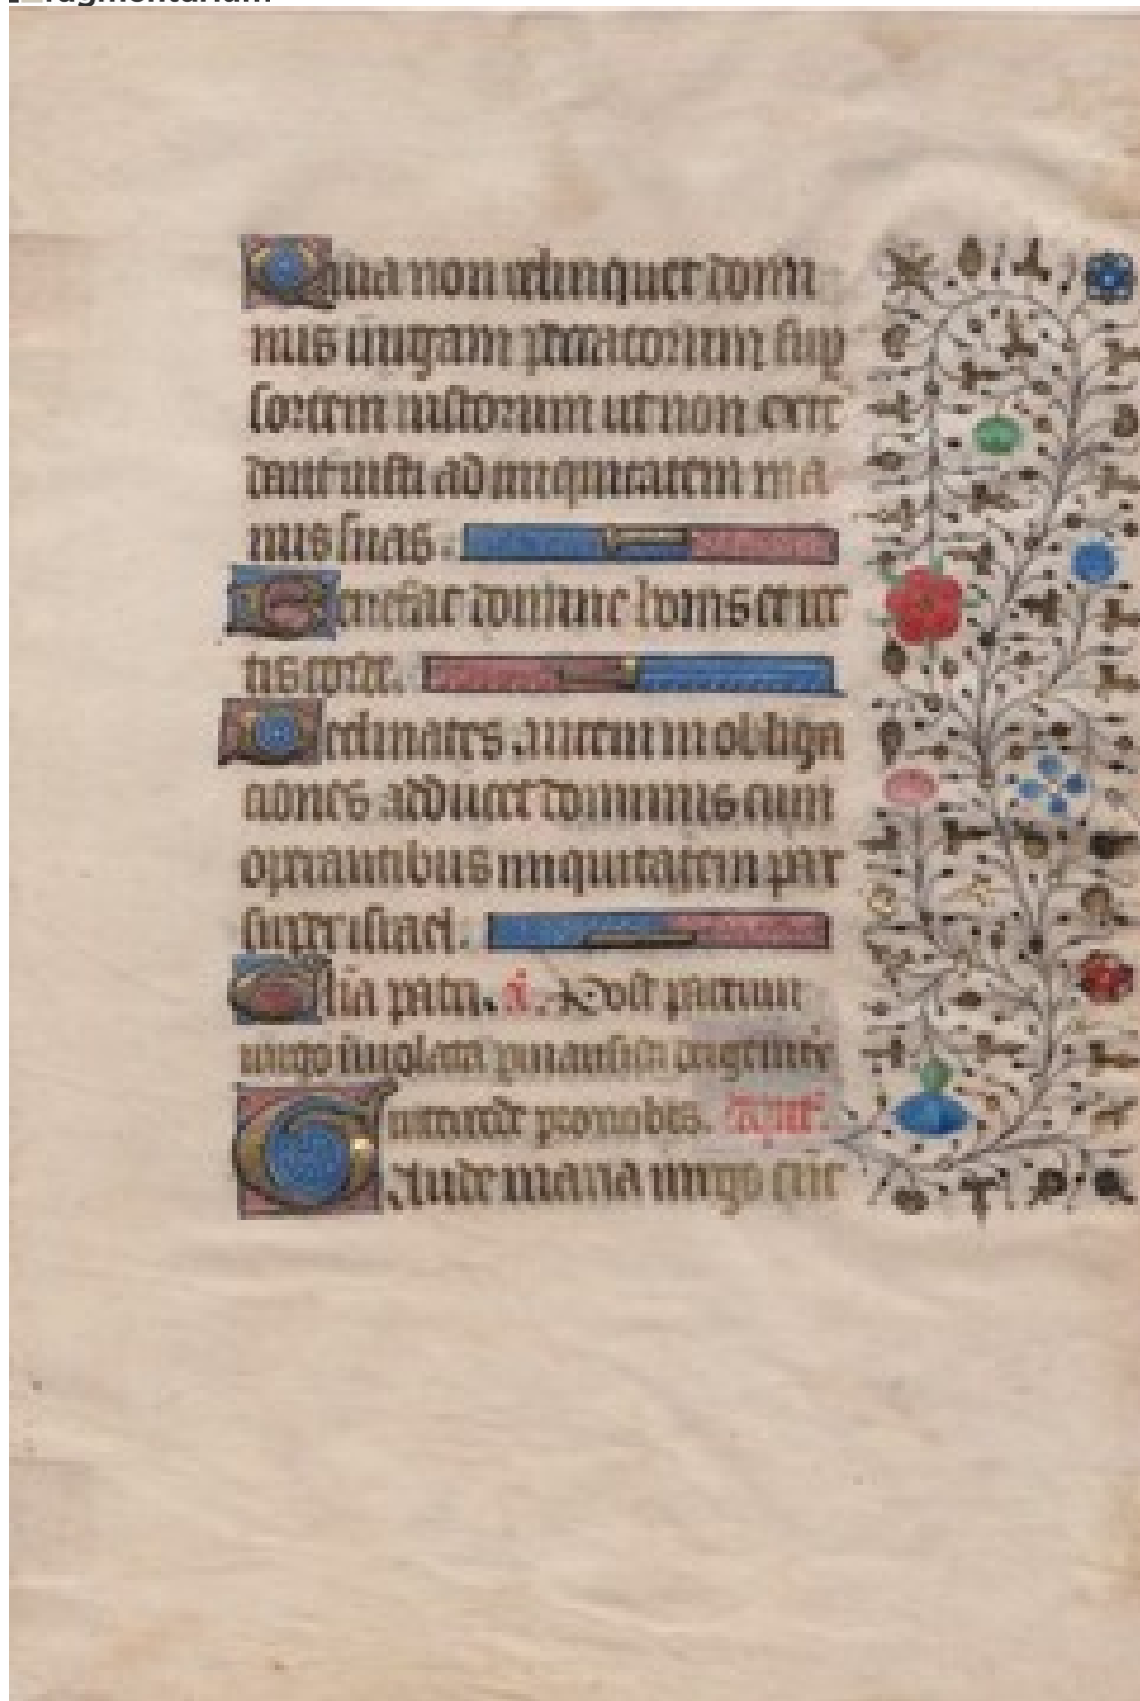 Fragmentarium
Quia non relinquet domi
nus uirgam peccatorum sup
sortem iustorum ut non exte
dant iusti ad iniquitatem ma
nus suas.
Benefac domine bonis et rec
tis corde.
Declinantes autem in obliga
ciones adducet dominus cum
operantibus iniquitatem pax
super israel.
Glia patri. a. Post partum
uirgo inuiolata pmansisti dei genitrix
intercede pro nobis.
Gaude maria uirgo